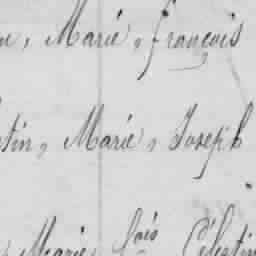 , Marie, françois
tin, Marie, Joseph
, Marie, fois Célestin